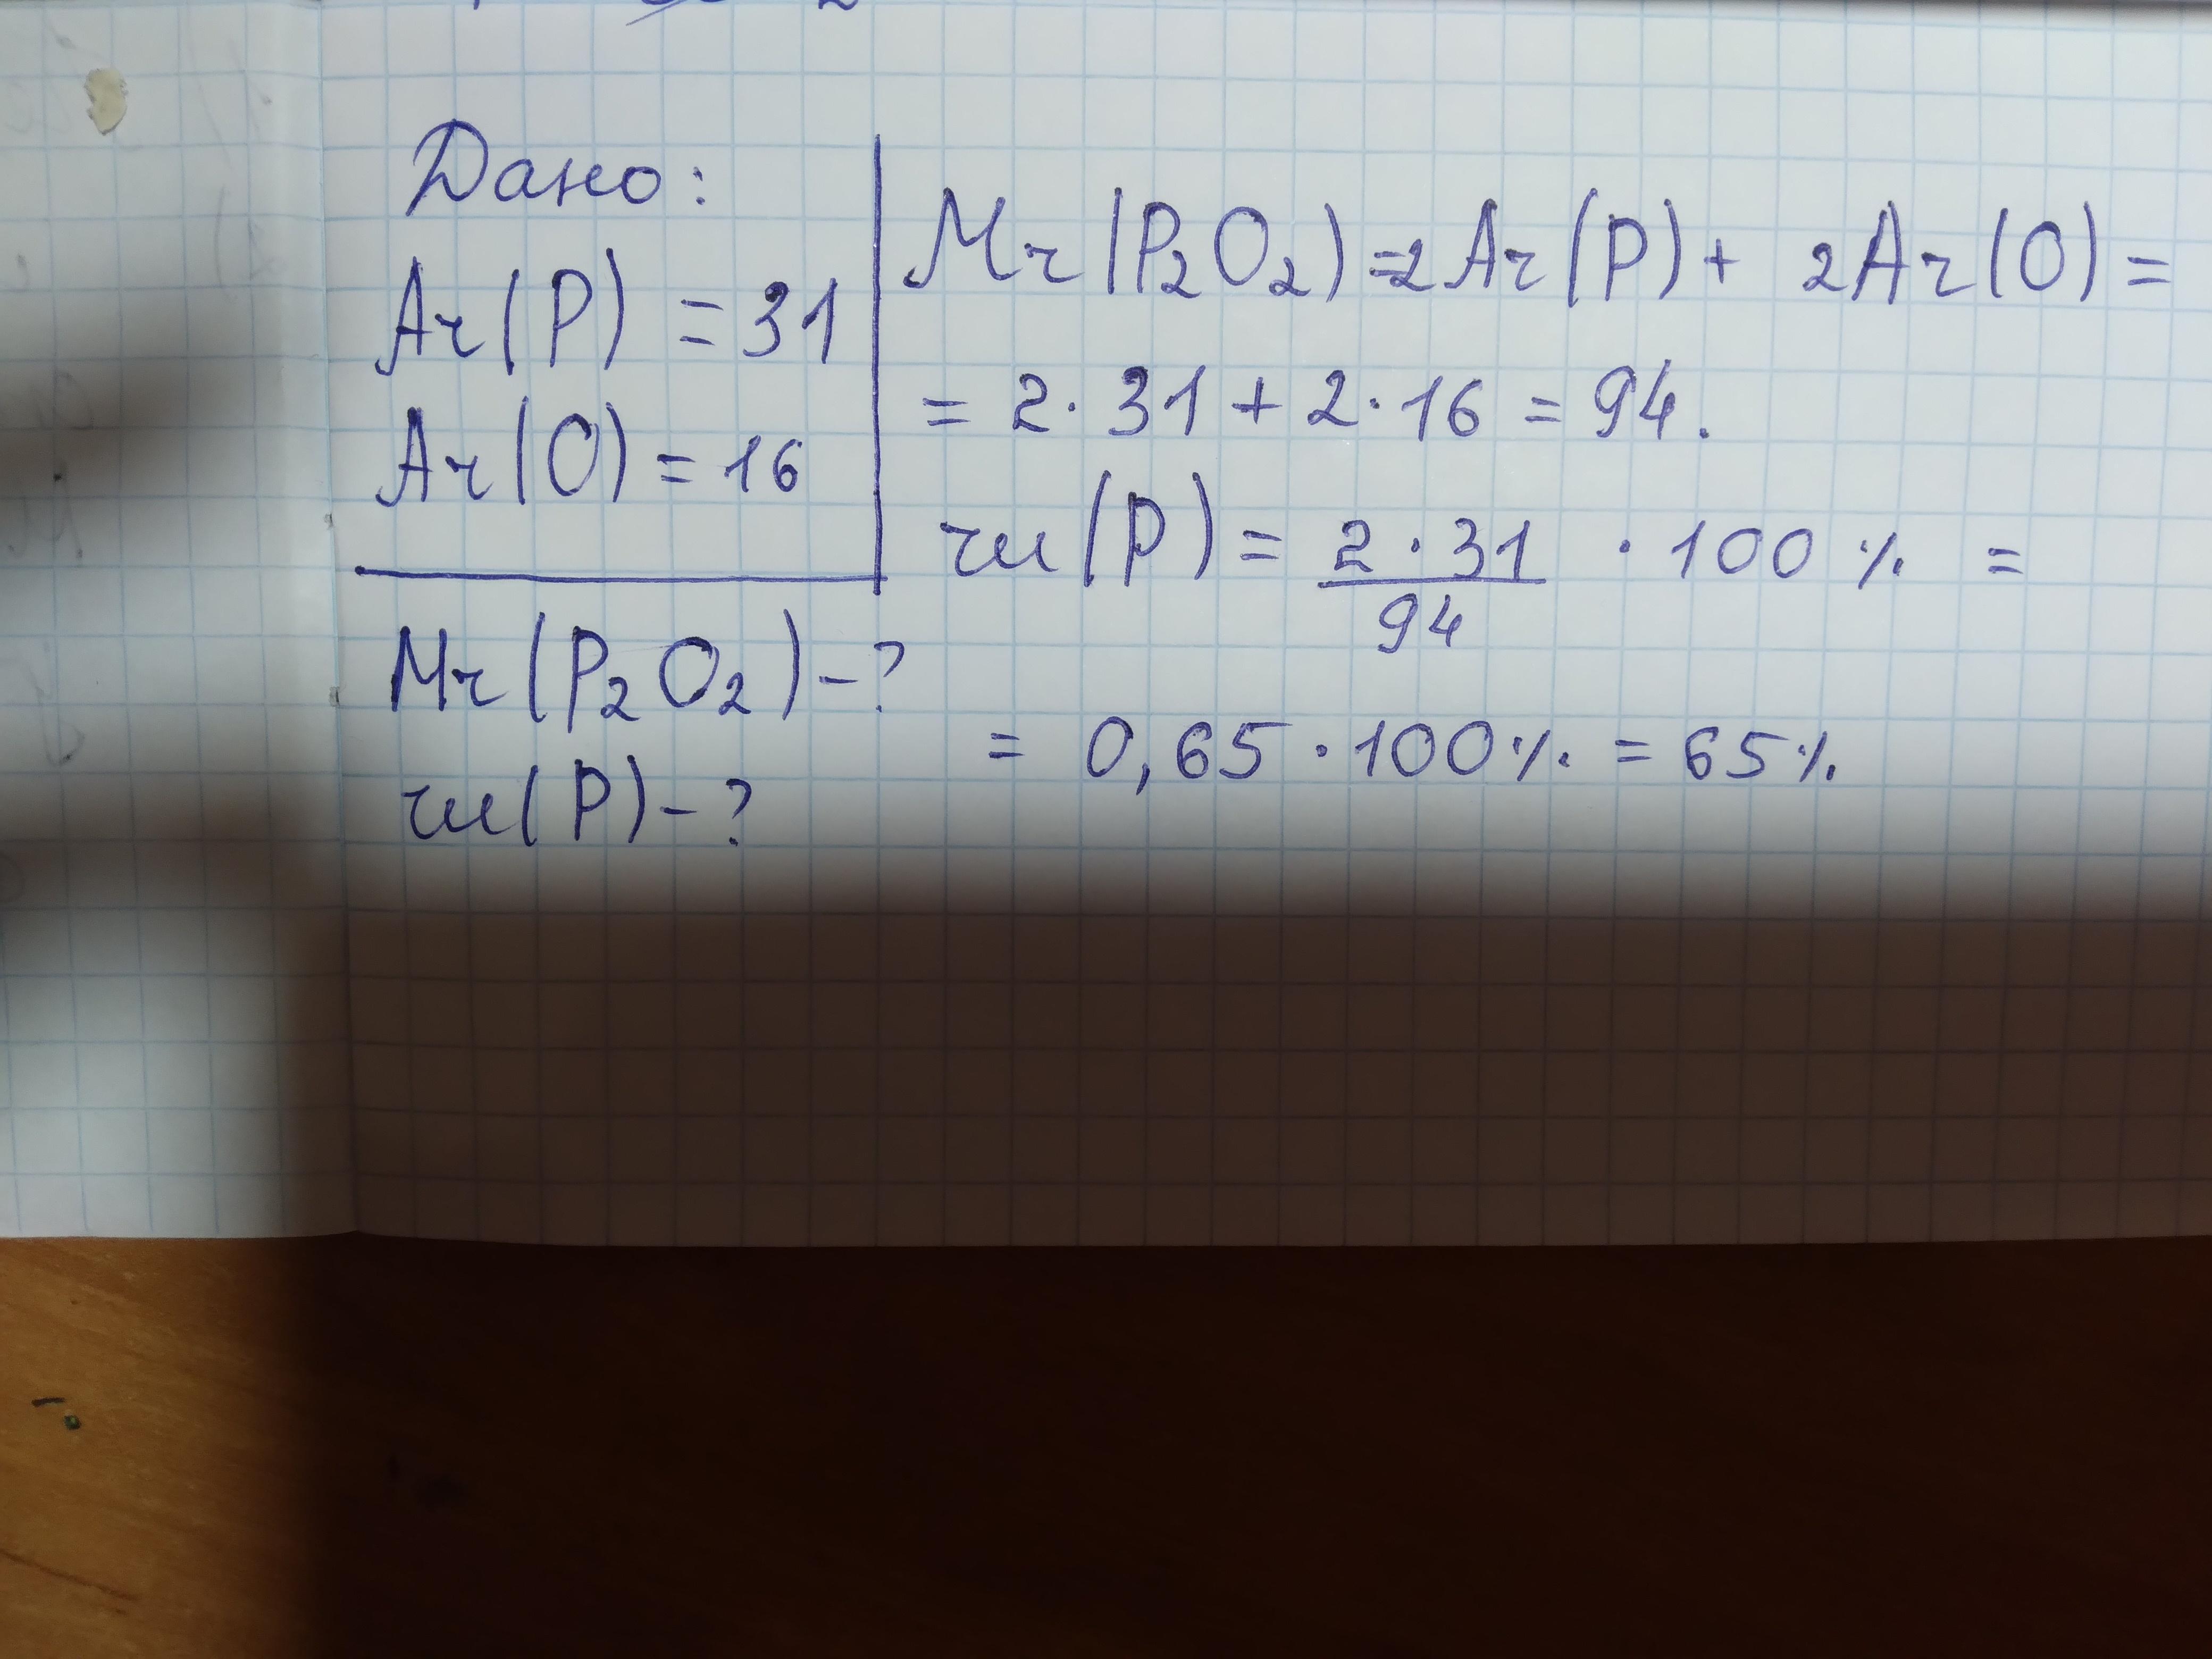 Дано:
Ar(P) = 31
Ar(O) = 16
Mr(P₂O₂) - ?
w(P) - ?
Mr(P₂O₂) = 2Ar(P) + 2Ar(O) =
= 2 · 31 + 2 · 16 = 94.
w(P) = 2 · 31 / 94 · 100 % =
= 0,65 · 100% = 65%